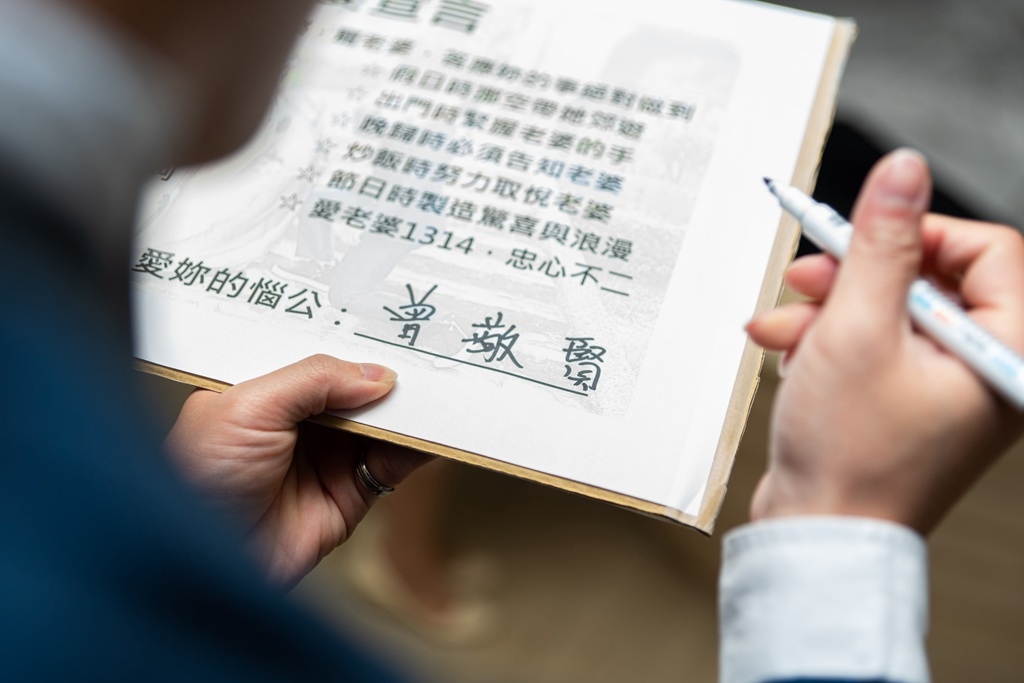 宣言
老婆,答應妳的事絕對做到
☆ 假日時撥空帶她郊遊
☆ 出門時緊握老婆的手
☆ 晚歸時必須告知老婆
☆ 炒飯時努力取悅老婆
☆ 節日時製造驚喜與浪漫
☆ 愛老婆1314,忠心不二
愛妳的惱公:曾敬賢